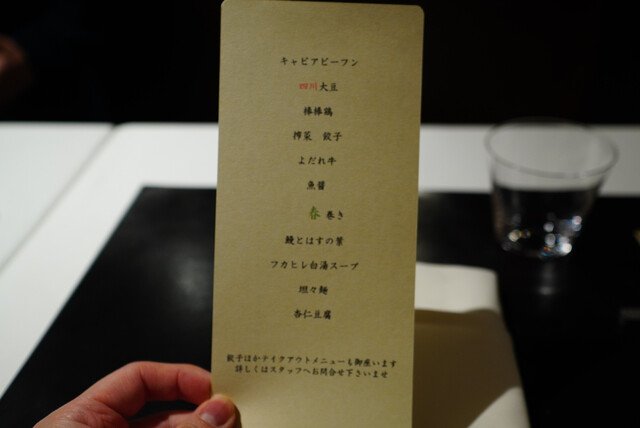 キャビアビーフン
四川大豆
棒棒鶏
搾菜 餃子
よだれ牛
魚醤
春巻き
鰻とはすの葉
フカヒレ白湯スープ
坦々麺
杏仁豆腐
餃子ほかテイクアウトメニューも御座います
詳しくはスタッフへお問合せ下さいませ